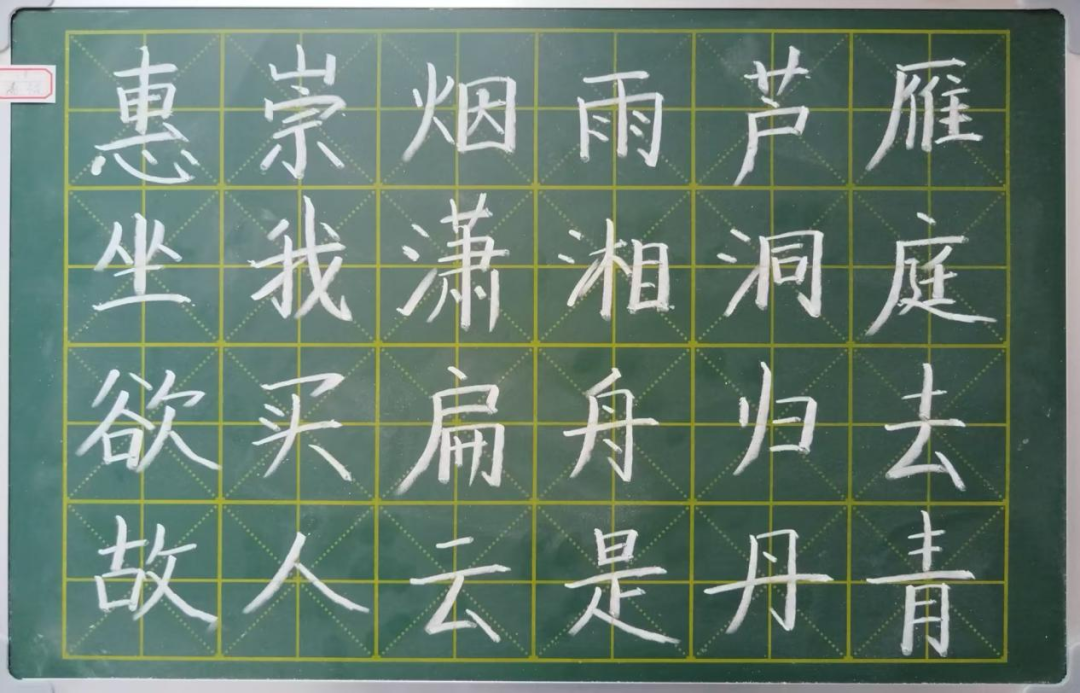 惠崇烟雨芦雁
坐我潇湘洞庭
欲买扁舟归去
故人云是丹青